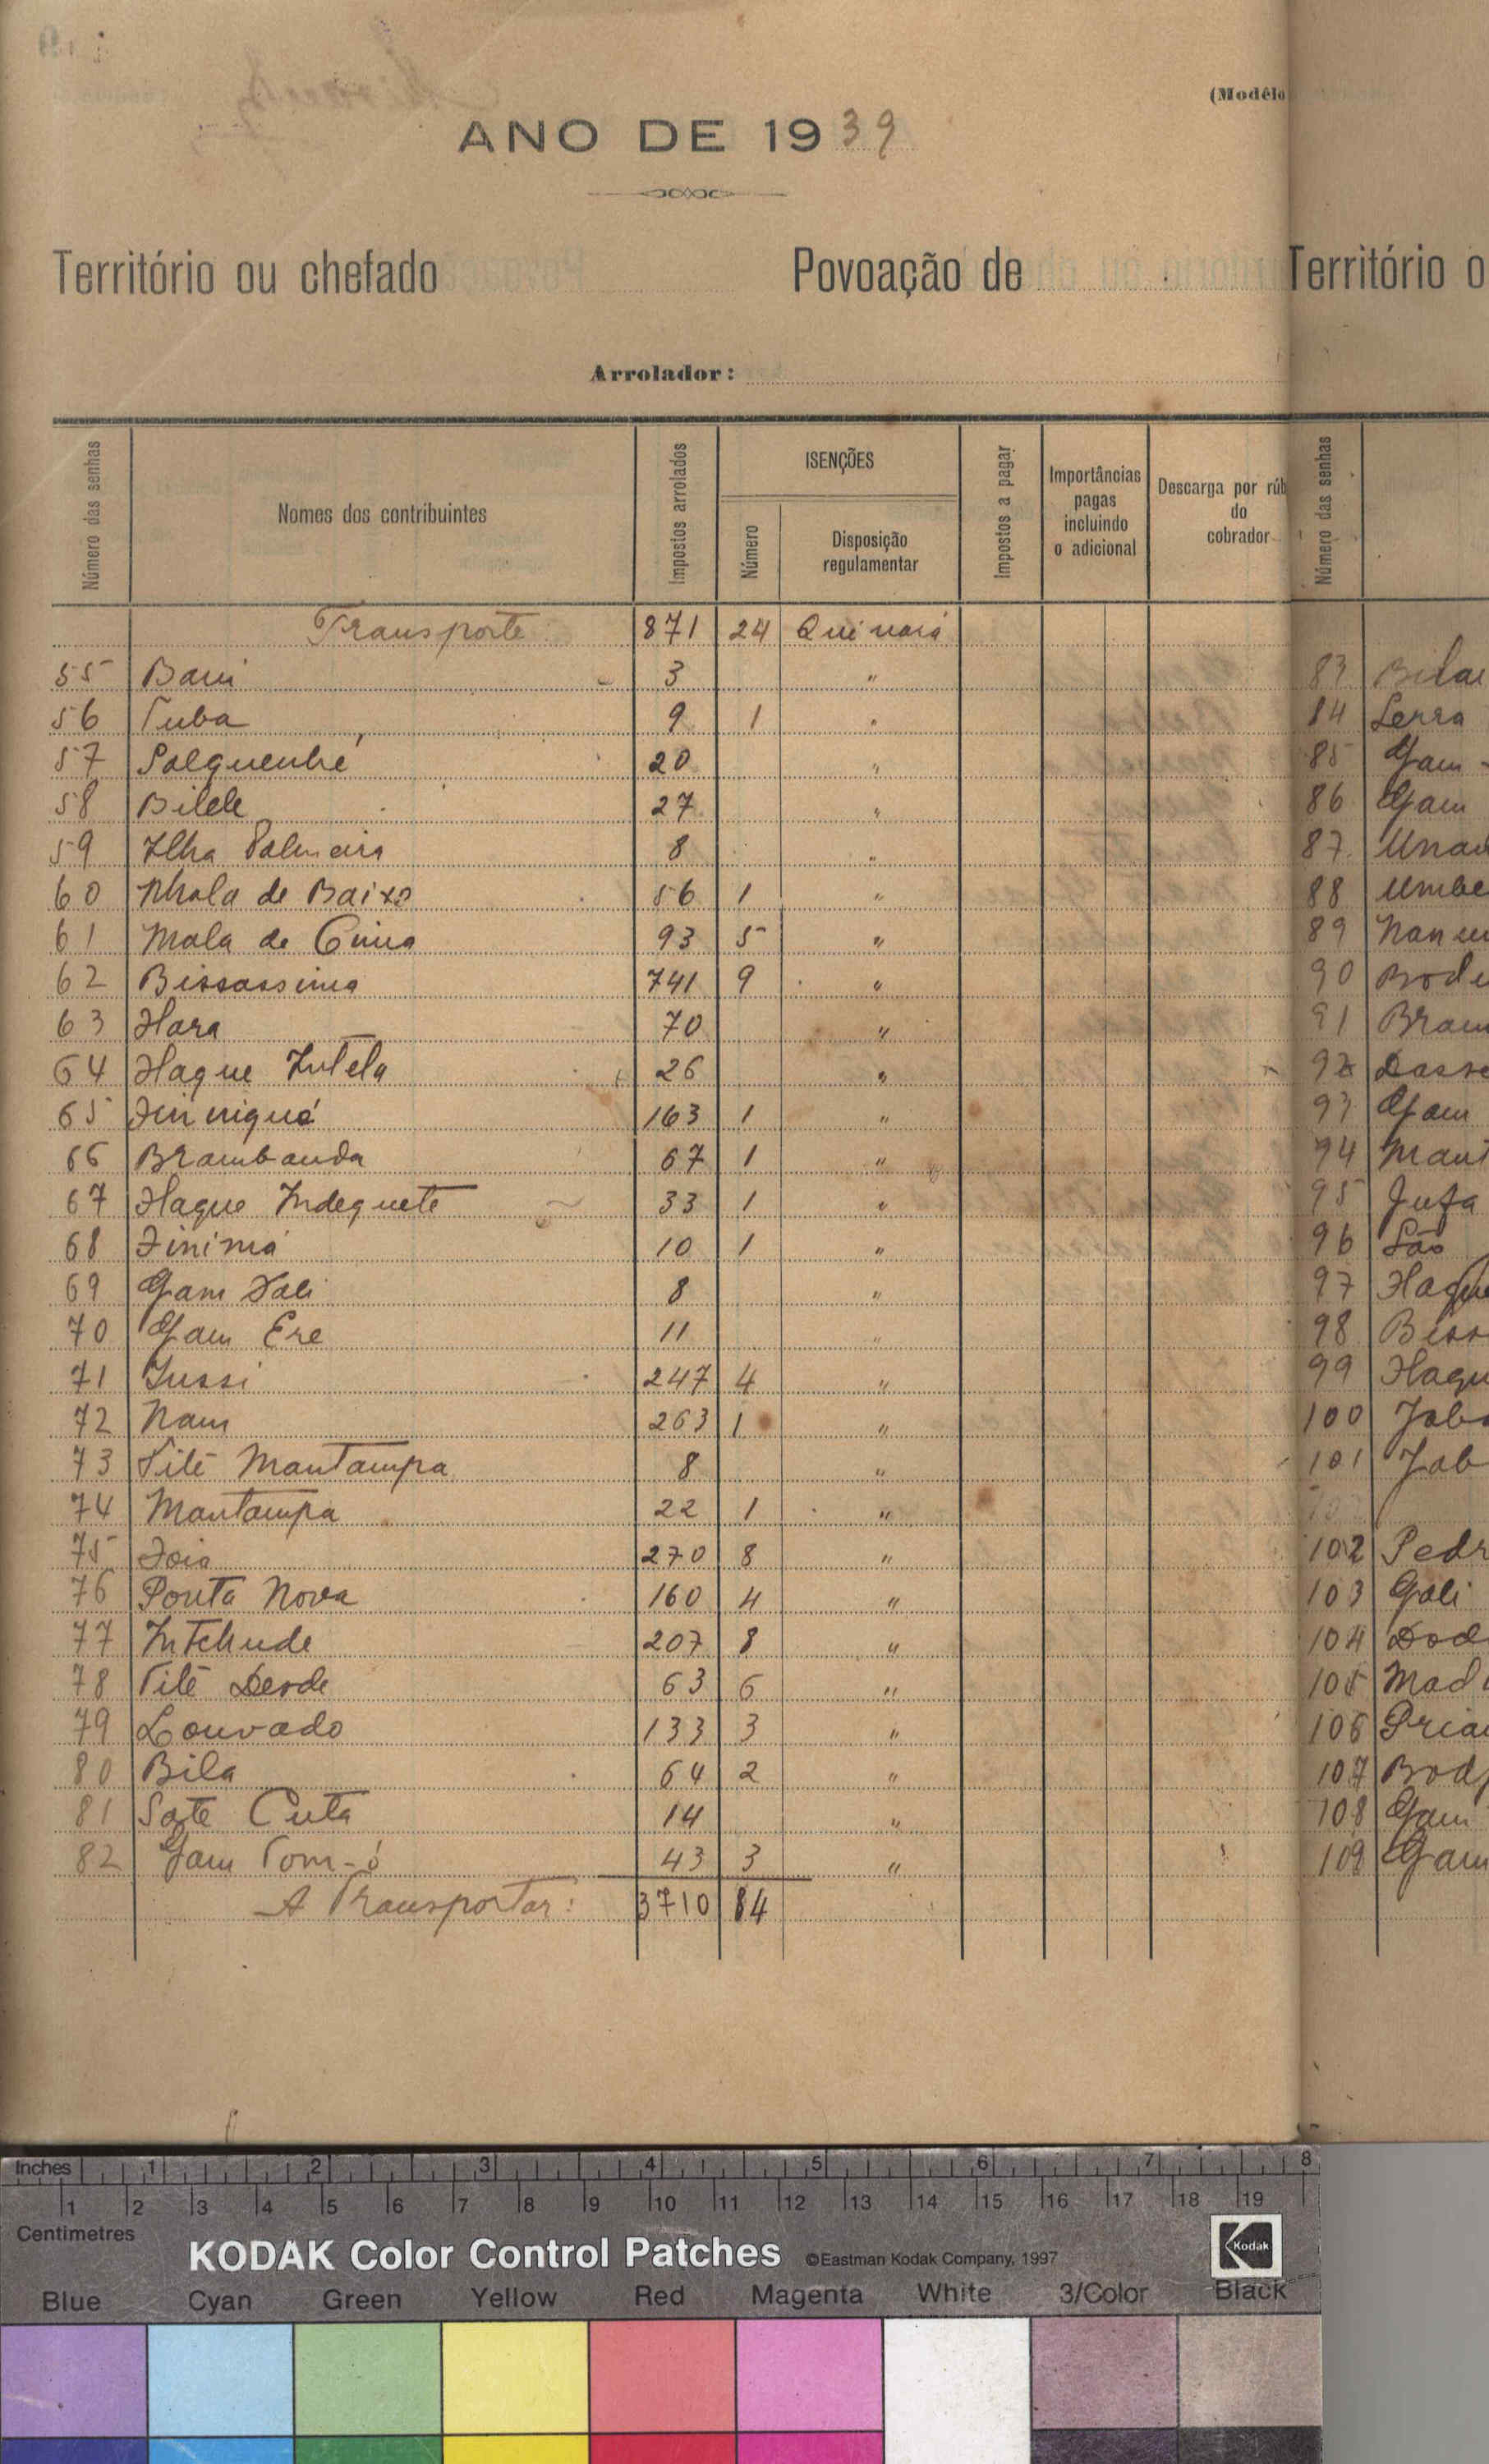 (Modêlo
ANO DE 1939
Território ou chefado Povoação de
Arrolador:
Número das senhas
Nomes dos contribuintes
Impostos arrolados
ISENÇÕES
Número
Disposição regulamentar
Impostos a pagar
Importâncias pagas incluindo o adicional
Descarga por rúb
do
cobrador
Transporte 871 24 Quinará
55 Bani 3 "
56 Tuba 9 1 "
57 Salquenhé 20 "
58 Bilele 27 "
59 Ilha Palmeira 8 "
60 Nhala de Baixo 56 1 "
61 Mala de Cima 93 5 "
62 Bissassima 741 9 "
63 Flara 70 "
64 Flaque Intela 26 "
65 163 1 "
66 Brambanda 67 1 "
67 Flaque Indequete 33 1 "
68 10 1 "
69 Gam 8 "
70 Gam Ere 11 "
71 Jussi 247 4 "
72 Nam 263 1 "
73 Tite Mantampa 8 "
74 Mantampa 22 1 "
75 Foia 270 8 "
76 Ponta Nova 160 4 "
77 Intchude 207 8 "
78 Tite Desde 63 6 "
79 Louvado 133 3 "
80 Bila 64 2 "
81 Cuta 14 "
82 Gam Tom-ó 43 3 "
A Transportar: 3710 84
Território o
Número das senhas
83 Bilai
84 Lenra
85 Gam -
86 Gam
87
88 Umbe
89
90 Bode
91 Bram
92 Dasse
93 Gam
94
95 Jufa
96 São
97 Flaque
98 Biss
99 Flaqu
100 Jab
101 Jab
102 Pedr
103 Gali
104 Dod
105 Mad
106 Pria
107 Bod
108 Gam
109 Gam
Inches 1 2 3 4 5 6 7 8
1 2 3 4 5 6 7 8 9 10 11 12 13 14 15 16 17 18 19
Centimetres
KODAK Color Control Patches ©Eastman Kodak Company, 1997 Kodak
Blue Cyan Green Yellow Red Magenta White 3/Color Black